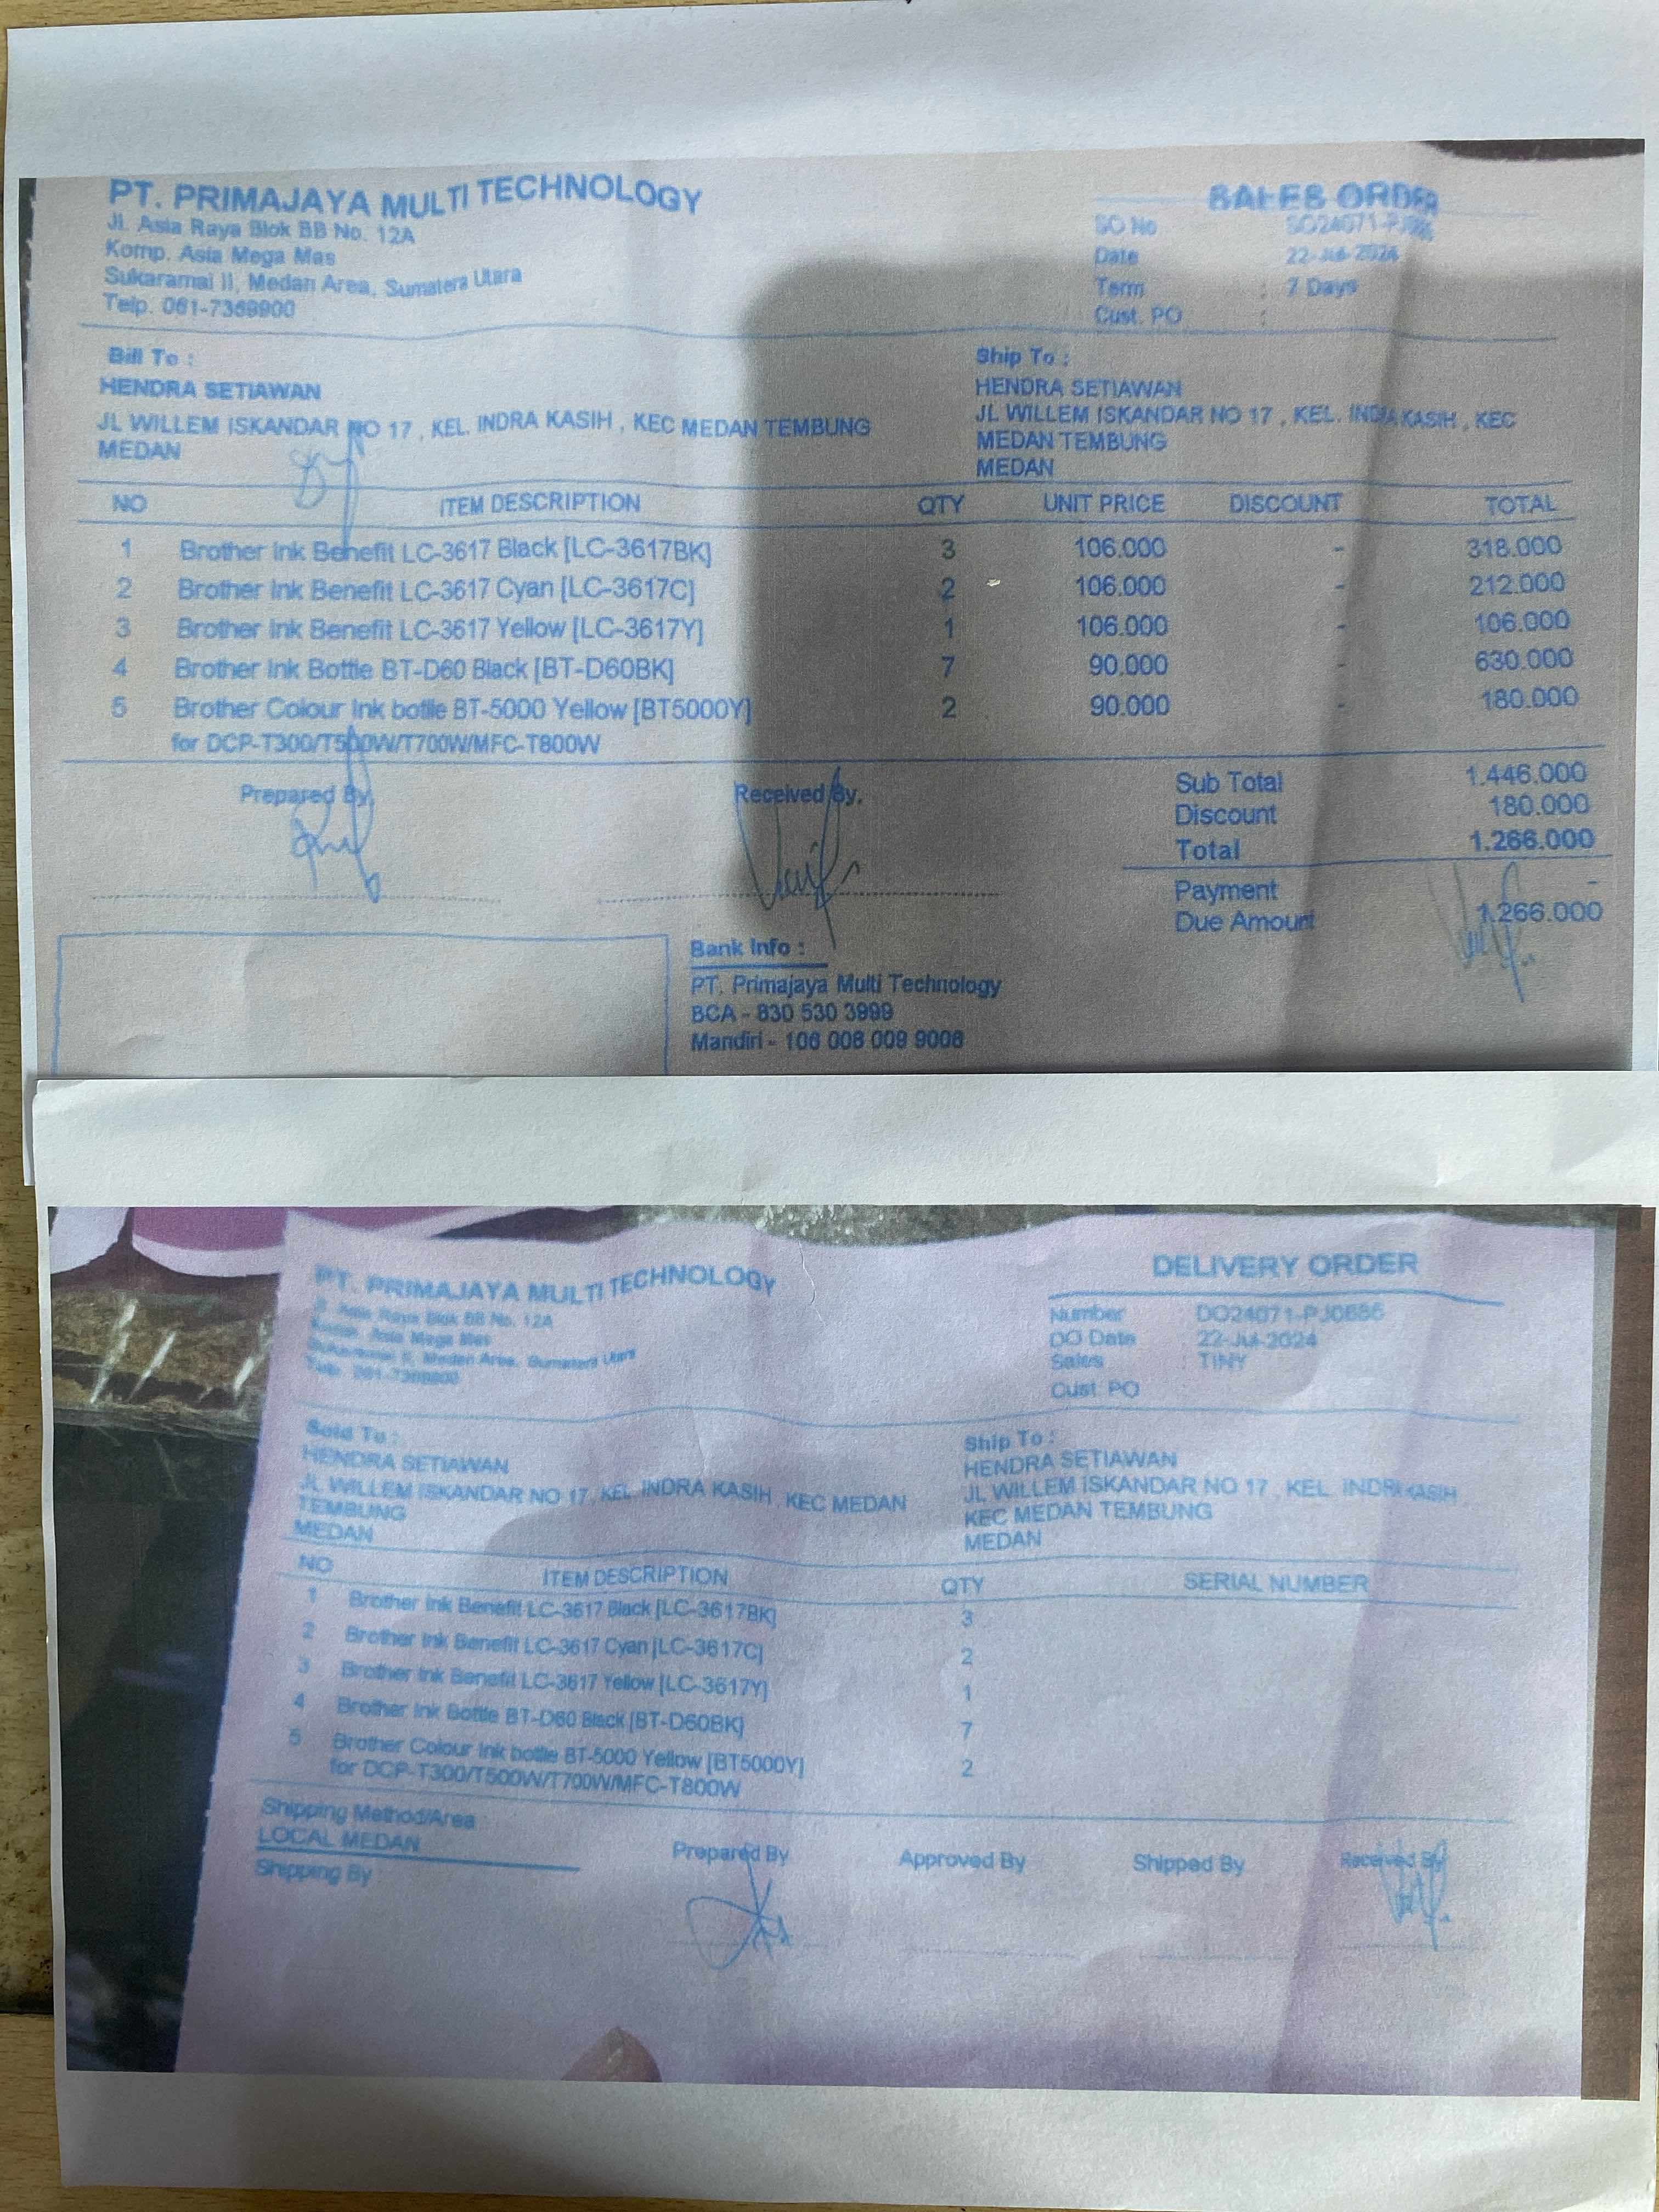 PT. PRIMAJAYA MULTI TECHNOLOGY
Jl. Asia Raya Blok BB No. 12A
Komp. Asia Mega Mas
Sukaramai II, Medan Area, Sumatera Utara
Telp. 061-7369900
SALES ORDER
SO No
Date 22-Jul-2024
Term : 7 Days
Cust. PO :
Bill To :
HENDRA SETIAWAN
JL WILLEM ISKANDAR NO 17 , KEL. INDRA KASIH , KEC MEDAN TEMBUNG
MEDAN
Ship To :
HENDRA SETIAWAN
JL WILLEM ISKANDAR NO 17 , KEL. INDRA KASIH , KEC
MEDAN TEMBUNG
MEDAN
NO ITEM DESCRIPTION QTY UNIT PRICE DISCOUNT TOTAL
1 Brother Ink Benefit LC-3617 Black [LC-3617BK] 3 106.000 - 318.000
2 Brother Ink Benefit LC-3617 Cyan [LC-3617C] 2 106.000 - 212.000
3 Brother Ink Benefit LC-3617 Yellow [LC-3617Y] 1 106.000 - 106.000
4 Brother Ink Bottle BT-D60 Black [BT-D60BK] 7 90.000 - 630.000
5 Brother Colour Ink botlle BT-5000 Yellow [BT5000Y] 2 90.000 - 180.000
for DCP-T300/T500W/T700W/MFC-T800W
Prepared By,
Received By,
Sub Total 1.446.000
Discount 180.000
Total 1.266.000
Payment -
Due Amount 1.266.000
Bank Info :
PT. Primajaya Multi Technology
BCA - 830 530 3999
Mandiri - 106 008 009 9008
PT. PRIMAJAYA MULTI TECHNOLOGY
Jl. Asia Raya Blok BB No. 12A
Komp. Asia Mega Mas
Sukaramai II, Medan Area, Sumatera Utara
Telp. 061-7369900
DELIVERY ORDER
Number : DO24071-PJ0686
DO Date : 22-Jul-2024
Sales : TINY
Cust. PO
Sold To :
HENDRA SETIAWAN
JL WILLEM ISKANDAR NO 17 , KEL. INDRA KASIH , KEC MEDAN
TEMBUNG
MEDAN
Ship To :
HENDRA SETIAWAN
JL WILLEM ISKANDAR NO 17 , KEL. INDRA KASIH ,
KEC MEDAN TEMBUNG
MEDAN
NO ITEM DESCRIPTION QTY SERIAL NUMBER
1 Brother Ink Benefit LC-3617 Black [LC-3617BK] 3
2 Brother Ink Benefit LC-3617 Cyan [LC-3617C] 2
3 Brother Ink Benefit LC-3617 Yellow [LC-3617Y] 1
4 Brother Ink Bottle BT-D60 Black [BT-D60BK] 7
5 Brother Colour Ink botlle BT-5000 Yellow [BT5000Y] 2
for DCP-T300/T500W/T700W/MFC-T800W
Shipping Method/Area
LOCAL MEDAN
Shipping By
Prepared By
Approved By
Shipped By
Received By